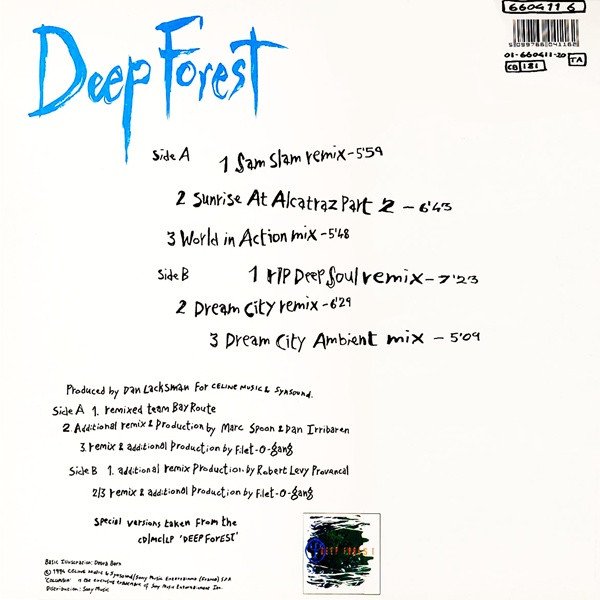 660411 6
5099766041162
01-660411-20
CB 181
TA
Deep Forest
Side A
1 Sam Slam remix - 5'59
2 Sunrise At Alcatraz Part 2 - 6'43
3 World in Action mix - 5'48
Side B
1 RIP Deep Soul remix - 7'23
2 Dream City remix - 6'29
3 Dream City Ambient mix - 5'09
Produced by Dan Lacksman For CELINE MUSIC & Synsound.
Side A 1. remixed team Bay Route
2. Additional remix & Production by Marc Spoon & Dan Irribaren
3. remix & additional Production by Filet-O-gang
Side B 1. additional remix Production by Robert Levy Provencal
2/3 remix & additional Production by Filet-O-gang
Special versions taken from the
CD/MC/LP 'DEEP FOREST'
DEEP FOREST
Basic Illustration: Debra Born
© 1994 CELINE Music & Synsound/Sony Music Entertainment (France) S.A
'COLUMBIA' is the exclusive trademark of Sony Music Entertainment Inc.
Distribution: Sony Music